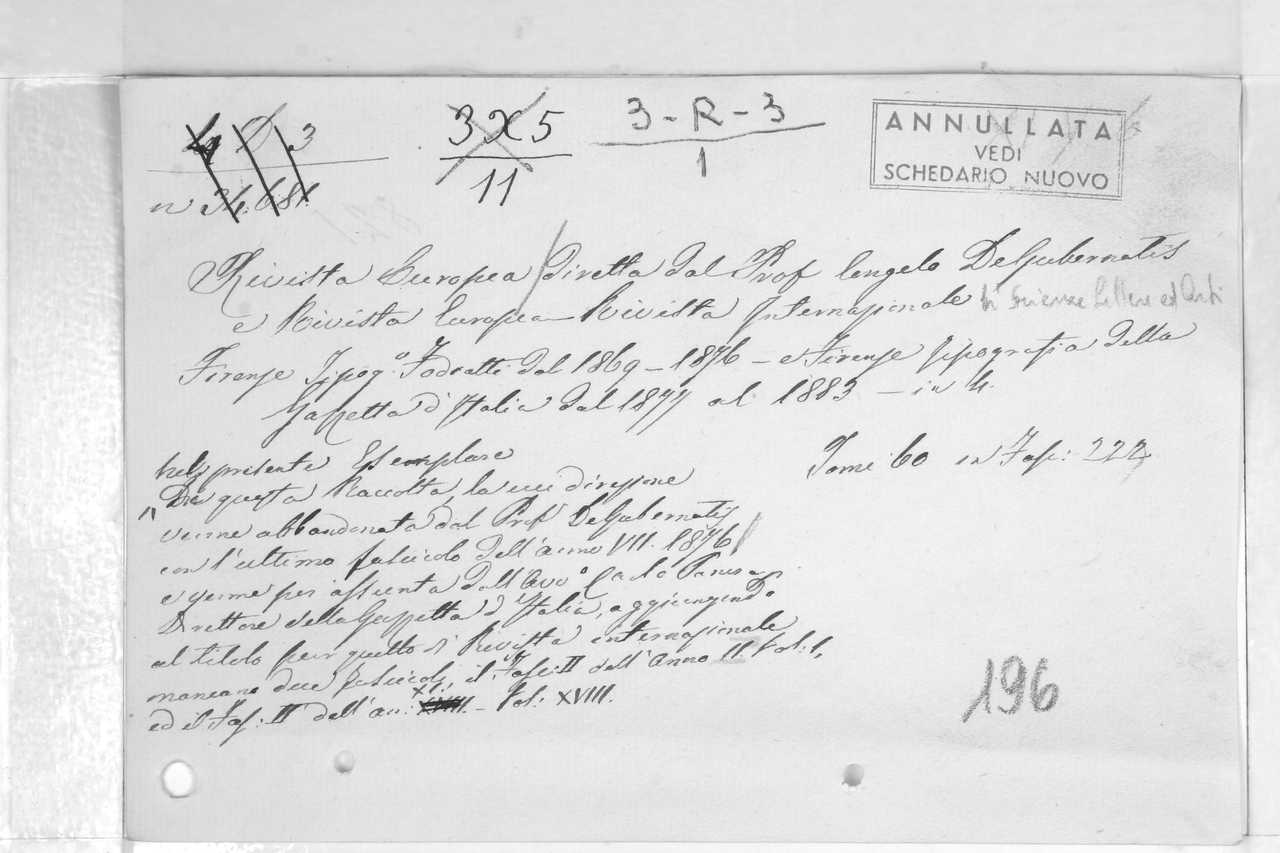 4 D 3
n 34.681.
3 X 5
11
3 - R - 3
1
ANNULLATA
VEDI
SCHEDARIO NUOVO
Rivista Europea / diretta dal Prof Angelo DeGubernatis
e Rivista Europea - Rivista Internazionale di Scienze Lettere ed Arti
Firenze Tipog.o Fodratti dal 1869 - 1876 - e Firenze Tipografia della
Gazzetta d'Italia dal 1877 al 1883 - in 4.
Tomi 60 in Fasi: 222
nel presente Esemplare
" Di questa Raccolta, la cui direzione
venne abbandonata dal Prof. DeGubernatis
con l'ultimo fascicolo dell'anno VII. 1876
e venne poi assunta dall'Avv.o Carlo Pancrazj
Direttore della Gazzetta d'Italia, aggiungendo
al titolo pur quello di Rivista internazionale
mancano due fascicoli, il Fasc: II dell'anno II. Vol: 1,
ed il Fas: II dell'an: XI. - Vol: XVIII.
196